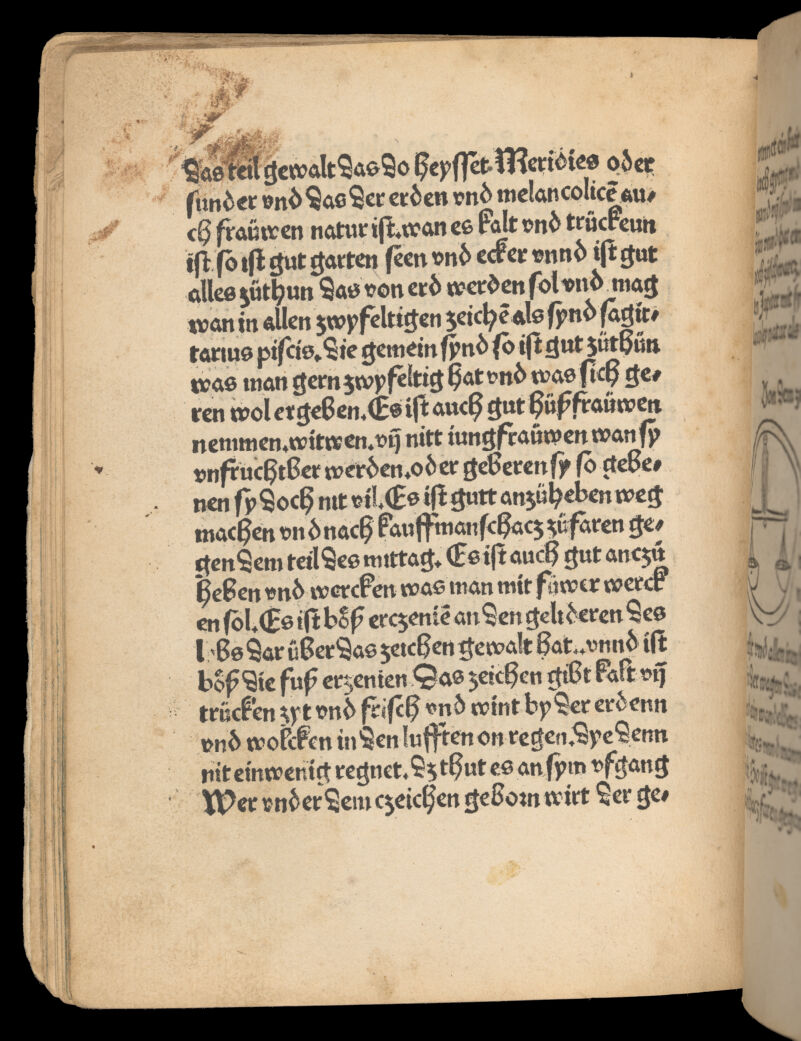 Das teil gewalt das do heysset Meridies oder
sunder vnd das der erden vnd melancolicē au⸗
ch fraüwen natur ist.wan es kalt vnd trückeun
ist so ist gut garten seen vnd ecker vnnd ist gut
alles zůthun das von erd werden sol vnd mag
wan in allen zwyfeltigen zeichē als synd sagit⸗
tarius piscis.Die gemein synd so ist gut zůthün
was man gern zwyfeltig hat vnd was sich ge⸗
ren wol ergeben.Es ist auch gut hüpß fraüwen
nemmen.witwen.vn̄ nitt iungfraüwen wan sy
vnfruchtber werden.oder geberen sy so gebe⸗
nen sy doch nit vil.Es ist gutt anzüheben weg
machen vnd nach kauffmanschacz zůfaren ge⸗
gen dem teil des mittag. Es ist auch gut anczů
heben vnd wercken was man mit füwer werck
en sol.Es ist bőß erczeniē an den gelideren des
l bs dar über das zeichen gewalt hat..vnnd ist
bőß die fuß erzenien Das zeichen gibt kalt vn̄
trücken zyt vnd frisch vnd wint by der erdenn
vnd wolcken in den lufften on regen.dye denn
nit ein wenig regnet.dz thut es an sym vfgang
Wer vnder dem czeichen geborn wirt der ge⸗